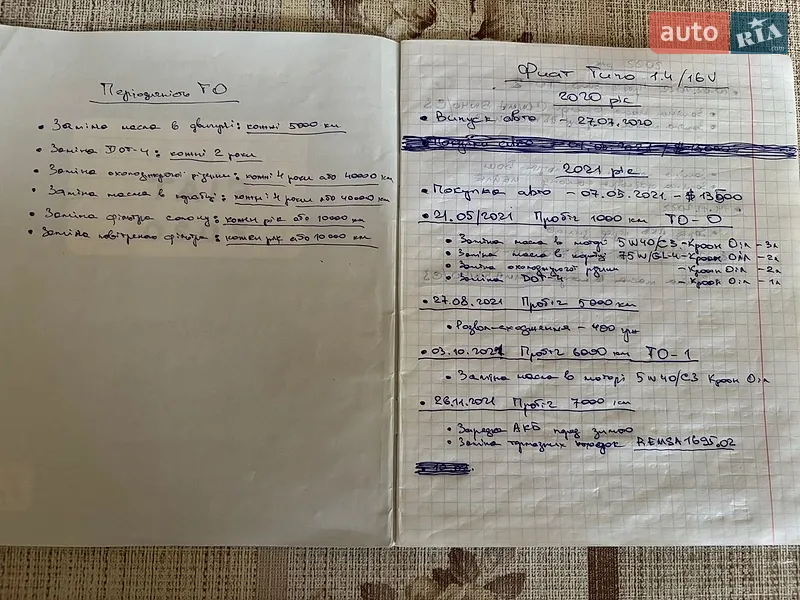 auto RIA.com
Періодичність ТО
• Заміна масла в двигуні: кожні 5000 км
• Заміна DOT-4: кожні 2 роки
• Заміна охолоджуючої рідини: кожні 4 роки або 40000 км
• Заміна масла в коробці: кожні 4 роки або 40000 км
• Заміна фільтра салону: кожен рік або 10000 км
• Заміна повітряного фільтра: кожен рік або 10000 км
Фиат Типо 1.4/16V
2020 рік
• Випуск авто - 27.07.2020
2021 рік
• Покупка авто - 07.05.2021 - $13500
• 21.05/2021 Пробіг 1000 км ТО-0
• Заміна масла в моторі 5W40/C3 - Кроон Оіл - 3л
• Заміна масла в коробці 75W/GL-4 - Кроон Оіл - 2л
• Заміна охолоджуючої рідини - Кроон Оіл - 2л
• Заміна DOT-4 - Кроон Оіл - 1л
• 27.08.2021 Пробіг 5000 км
• Розвал-сходження - 400 грн
• 03.10.2021 Пробіг 6000 км ТО-1
• Заміна масла в моторі 5W40/C3 Кроон Оіл
• 26.11.2021 Пробіг 7000 км
• Зарядка АКБ перед зимою
• Заміна тормозних колодок REMSA 1695.02